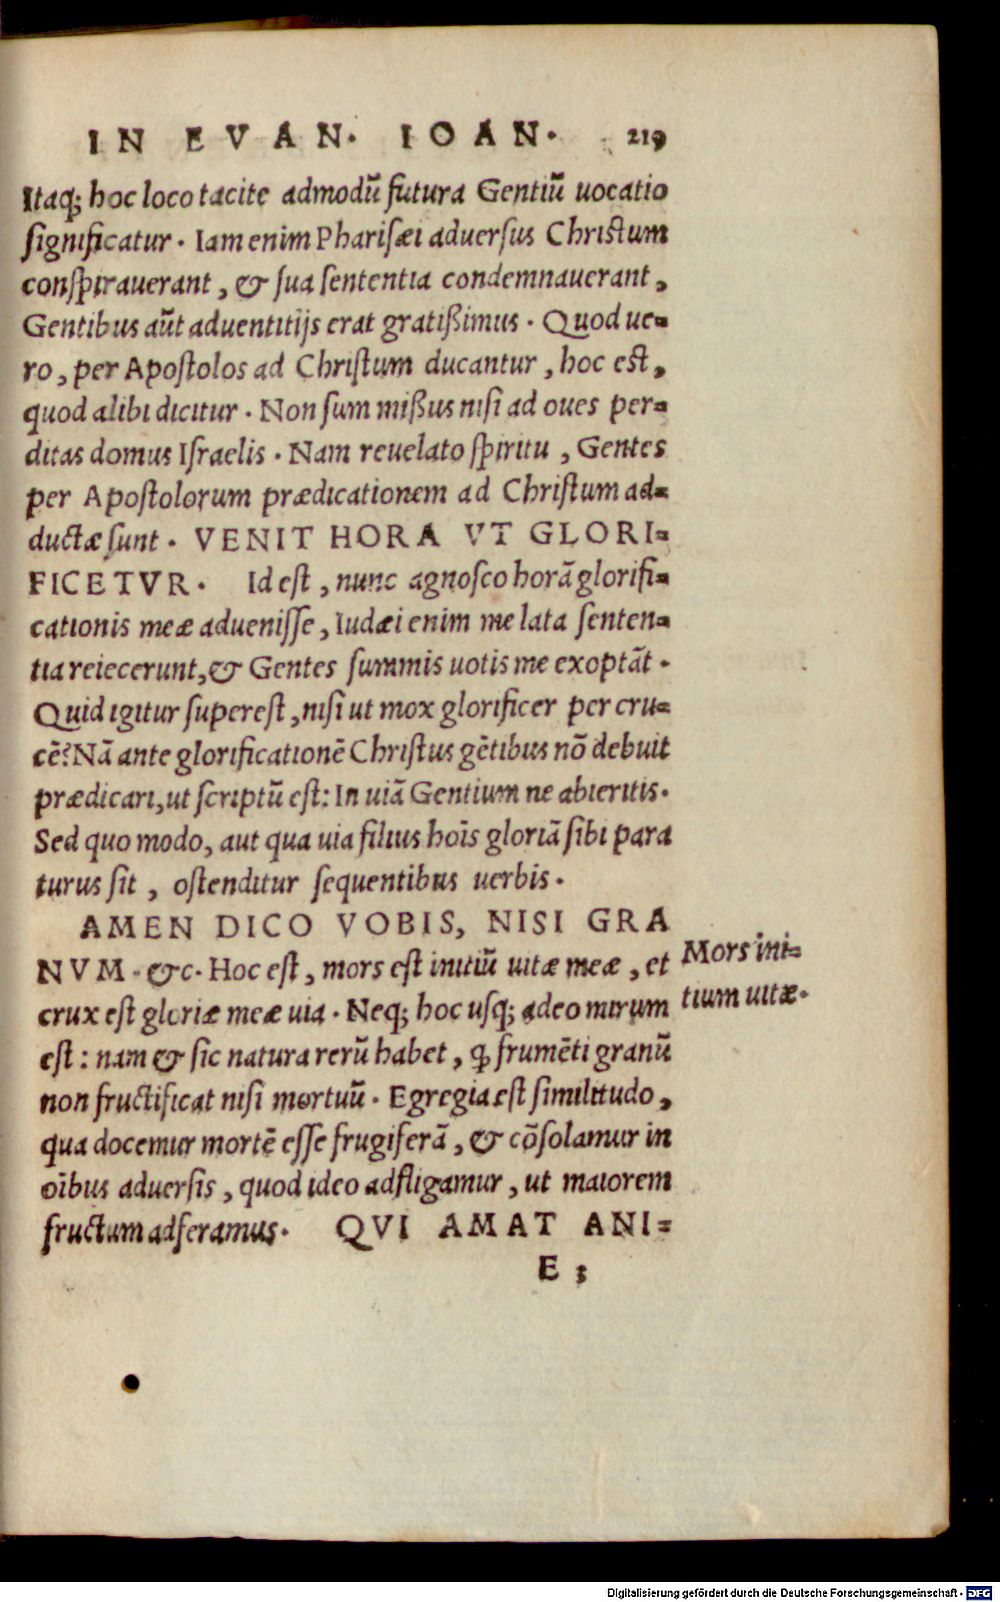 IN EVAN. IOAN. 219
Itaq; hoc loco tacite admodũ futura Gentiũ uocatio
significatur. Iam enim Pharisæi aduersus Christum
conspirauerant, & sua sententia condemnauerant,
Gentibus aũt aduentitijs erat gratißimus. Quod ue=
ro, per Apostolos ad Christum ducantur, hoc est,
quod alibi dicitur. Non sum mißus nisi ad oues per=
ditas domus Israelis. Nam reuelato spiritu, Gentes
per Apostolorum prædicationem ad Christum ad=
ductæ sunt. VENIT HORA VT GLORI=
FICETVR. Id est, nunc agnosco horã glorifi=
cationis meæ aduenisse, Iudæi enim me lata senten=
tia reiecerunt, & Gentes summis uotis me exoptãt.
Quid igitur superest, nisi ut mox glorificer per cru=
cẽ? Nã ante glorificationẽ Christus gẽtibus nõ debuit
prædicari, ut scriptũ est: In uiã Gentium ne abieritis.
Sed quo modo, aut qua uia filius hoĩs gloriã sibi para
turus sit, ostenditur sequentibus uerbis.
AMEN DICO VOBIS, NISI GRA
NVM. &c. Hoc est, mors est initiũ uitæ meæ, et
Mors ini=
crux est gloriæ meæ uia. Neq; hoc usq; adeo mirum
tium uitæ.
est: nam & sic natura rerũ habet, ꝙ frumẽti granũ
non fructificat nisi mortuũ. Egregia est similitudo,
qua docemur mortẽ esse frugiferã, & cõsolamur in
oĩbus aduersis, quod ideo adfligamur, ut maiorem
fructum adferamus. QVI AMAT ANI=
E 3
Digitalisierung gefördert durch die Deutsche Forschungsgemeinschaft - DFG